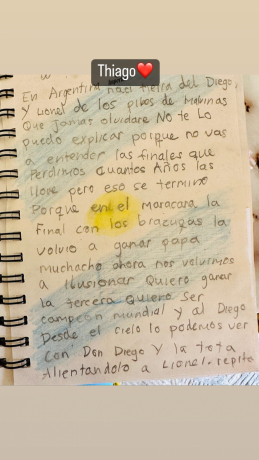 Thiago❤
En Argentina nací tierra del Diego,
Y Lionel de los pibes de Malvinas
Que jamas olvidare No te Lo
puedo explicar porque no vas
a entender las finales que
Perdimos Cuantos Años las
llore pero eso se termino
Porque en el Maracana la
final con los brazucas la
volvio a ganar papa
muchacho ahora nos volvimos
a ilusionar Quiero ganar
la tercera Quiero Ser
campeon mundial y al Diego
Desde el cielo lo podemos ver
Con Don Diego Y la tota
Alientandolo a Lionel. repita